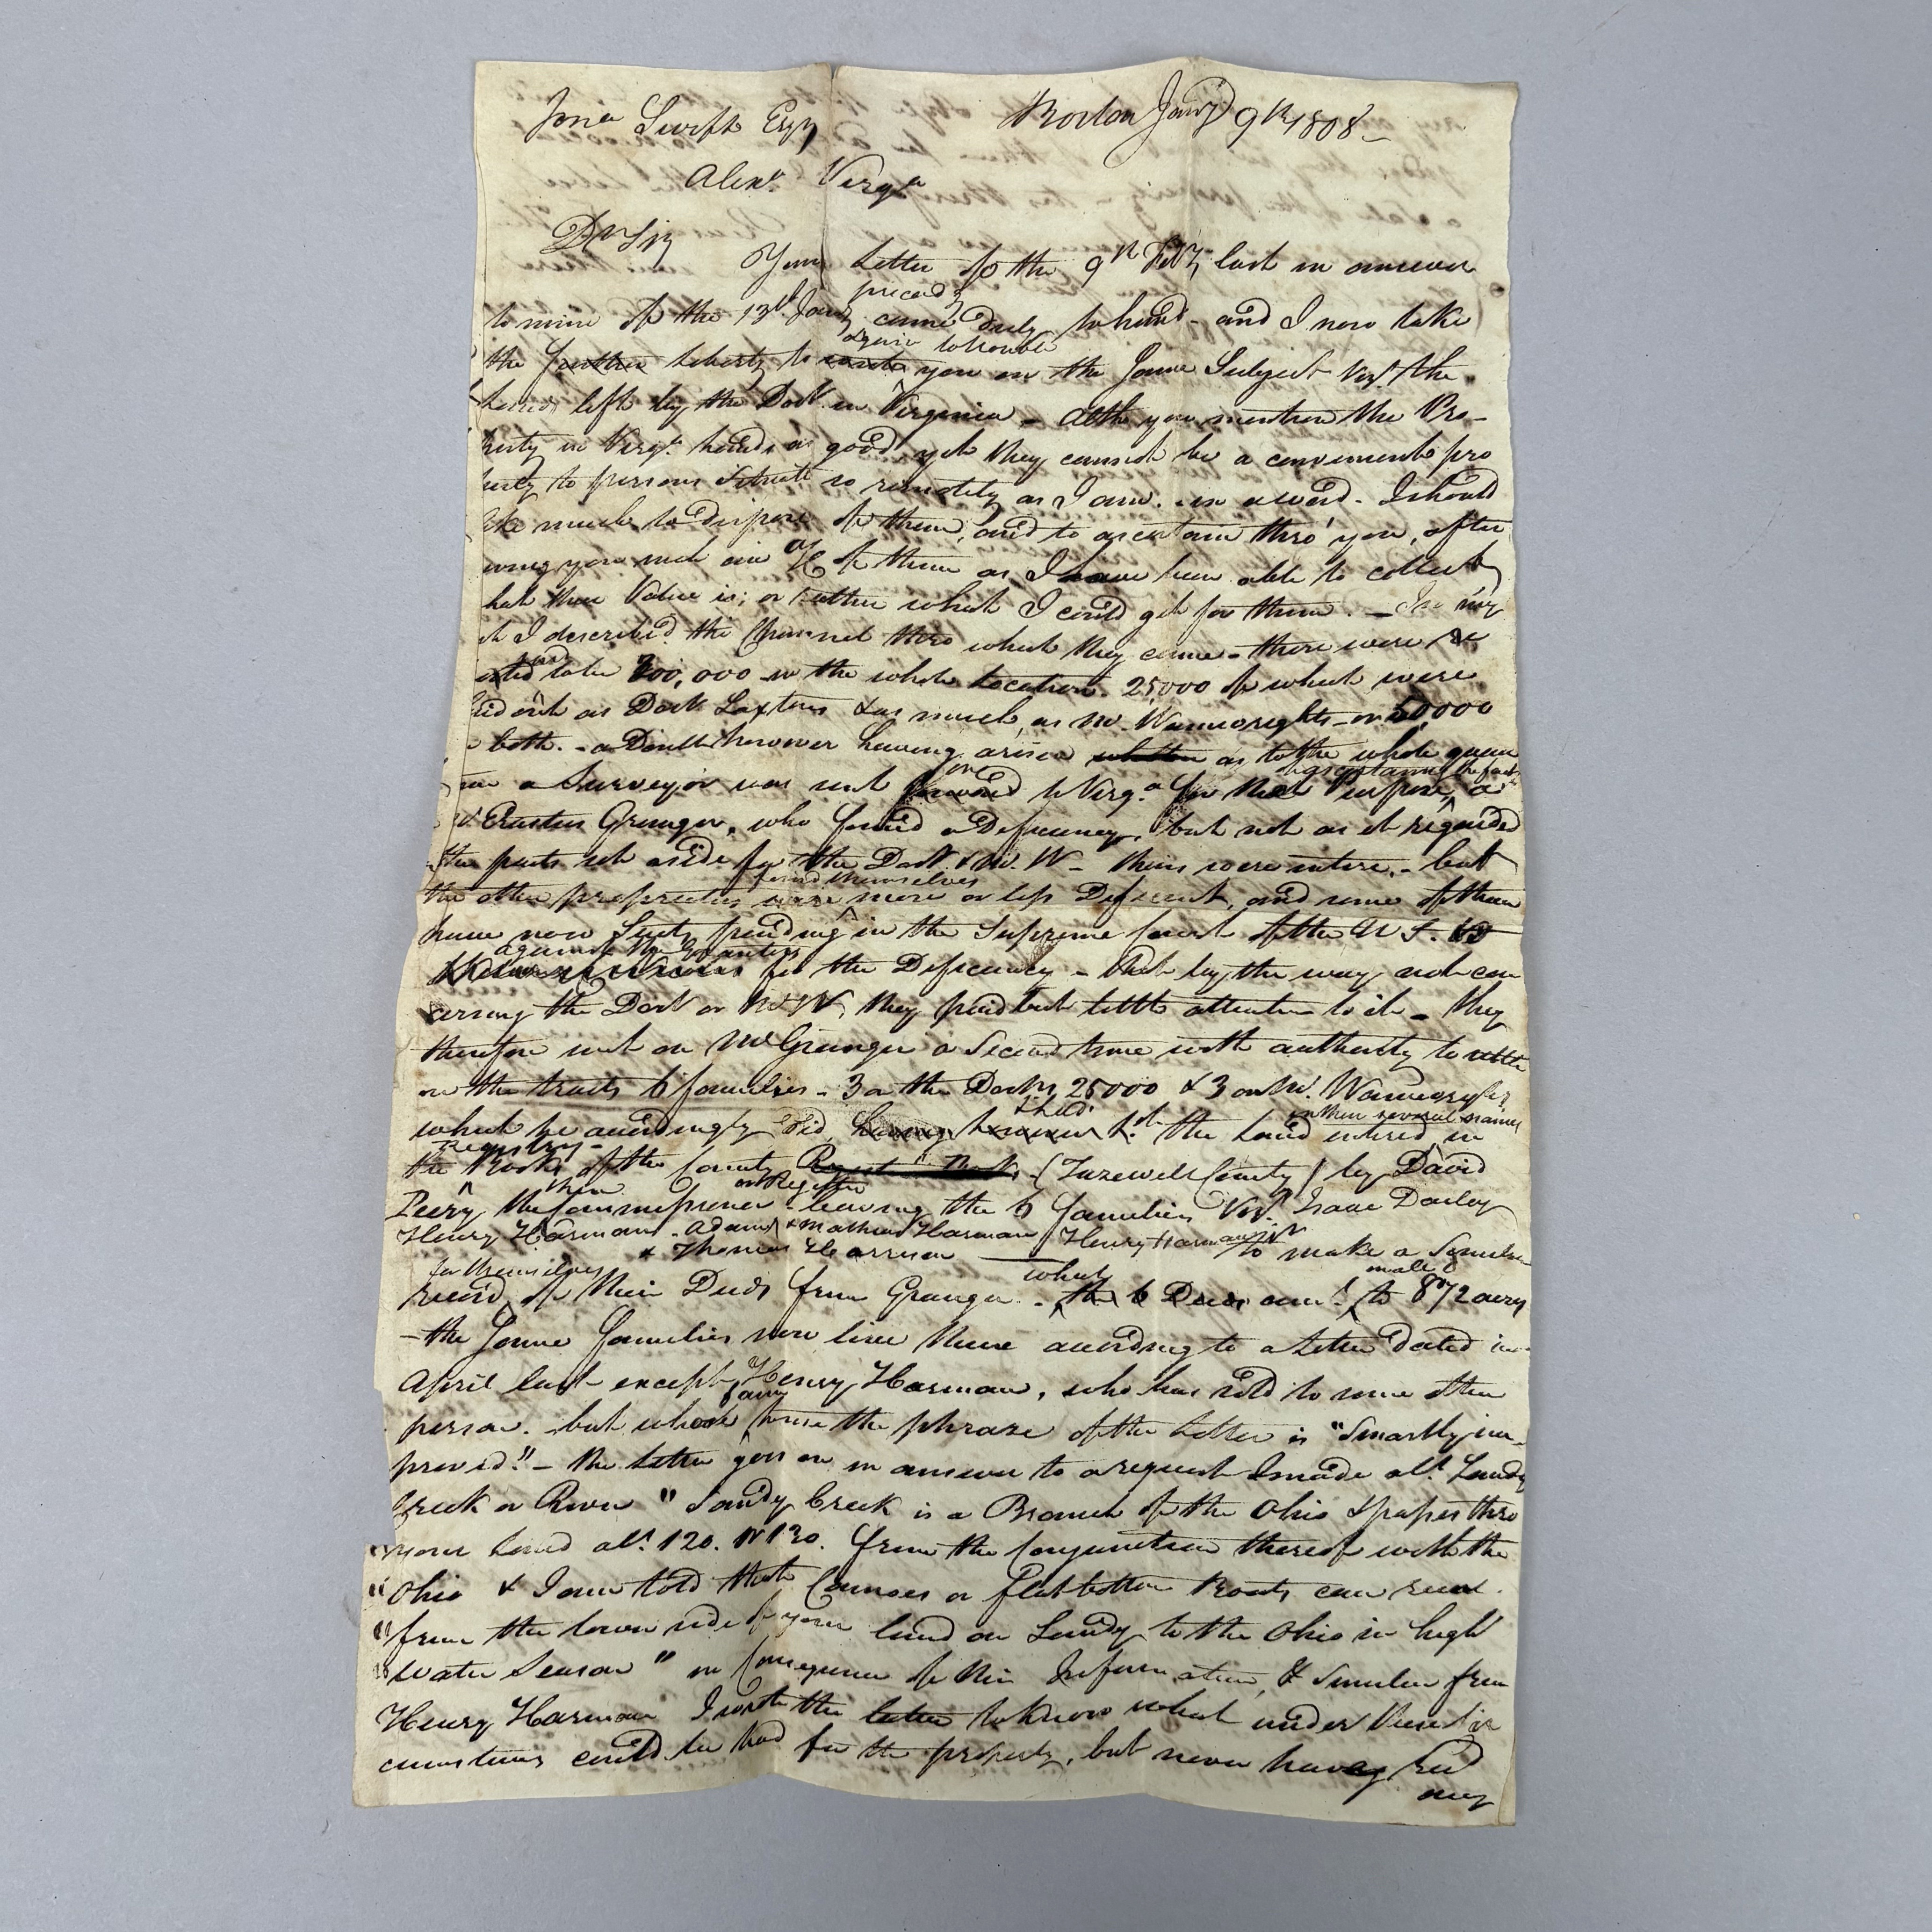 Jona Swift Esqr
Boston Jany 9th 1808
Alexa Virga
Dr Sir
Your Letter of the 9th Feby last in answer
preceedg
to mine of the 13th Jany came duly to hand - and I now take
again to trouble
the further liberty to you on the same Subject Vizt the
Lands left by the Doct. in Virginia - altho you mention the Pro-
perty in Virga Lands as good, yet they cannot be a convenient pro
perty to persons Situate so remotely as I am. in a word - I should
like much to dispose of them, and to ascertain thro' you, after
giving you such an of them as I have been able to collect,
what their Value is; or rather what I could get for them. - In my
I described the Channel thro which they came - there were
to be 300,000 in the whole Location - 25000 of which were
laid out as Doct Laxtons & as much as Mr. Wainwrights - or 50,000
both. - a Doubt however having arisen as to the whole quan
on
ascertaining the fact
a Surveyor was sent to Virga for that purpose, a
Mr Erastus Granger, who found a Deficiency, but not as it regarded
the parts set aside for the Doct & Mr. W - theirs were entire. - but
found themselves
the other proprietors more or less Deficient, and some of them
have now Suits pending in the Supreme Court of the U S.
against the Grantors
for the Deficiency - that by the way, not con
cerning the Doct or Mr W, they paid but little attention to it - they
therefore sent on Mr Granger a Second time with authority to settle
on the tracts 6 families - 3 on the Docts 25000 & 3 on Mr. Wainwrights
in their several names
which he accordingly did, the Land entered in
Registry
the Books of the County (Tazewell County) by David
then or Register
Peery, the Commissioner leaving the 6 families Vizt Isaac Dailey
Henry Harman - Adam & Mathias Harman Henry Harman Jr
& Thomas Harrison to make a Similar
for themselves
what
make
record of their Deeds from Granger - amt. to 872 acres
- the Same families now live there according to a Letter dated in
April last except Henry Harman, who has sold to some other
person - but the phrase of the Letter is "Smartly im-
proved." - the Letter goes on in answer to a request I made abt. Sandy
Creek or River "Sandy Creek is a Branch of the Ohio & passes thro
your Land abt. 120. or 130. from the Conjunction thereof with the
"Ohio & I am told that Canoes or flat bottom Boats can run
"from the lower side of your land on Sandy to the Ohio in high
"water Season" in Consequence of this Information, & Similar from
Henry Harman I wrote the to know what under these cir
cumstances could be had for the property, but never having recd
any